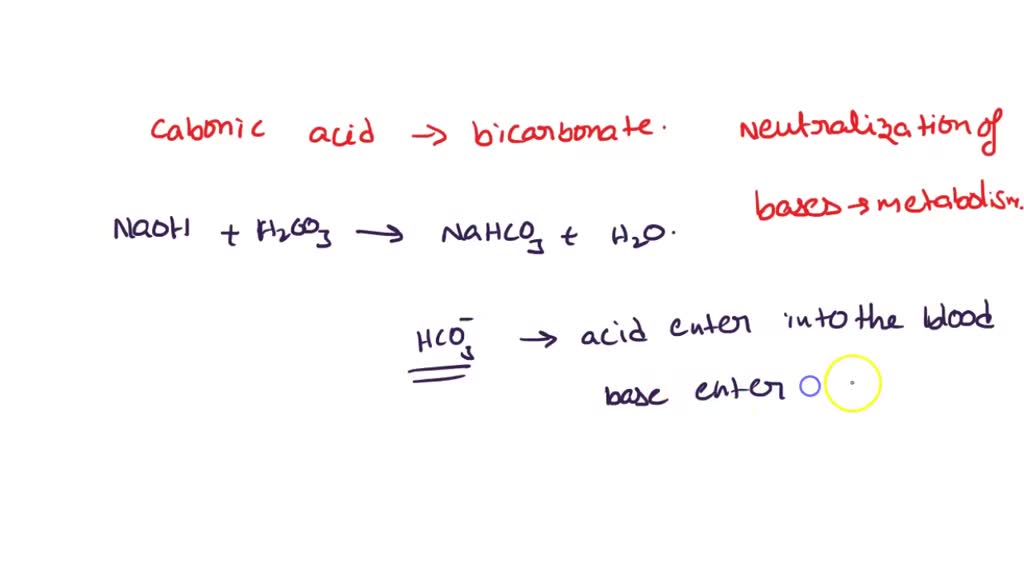 Cabonic acid → bicarbonate. Neutralization of
bases → metabolism.
NaOH + H₂CO₃ → NaHCO₃ + H₂O.
HCO₃⁻ → acid enter into the blood
base enter